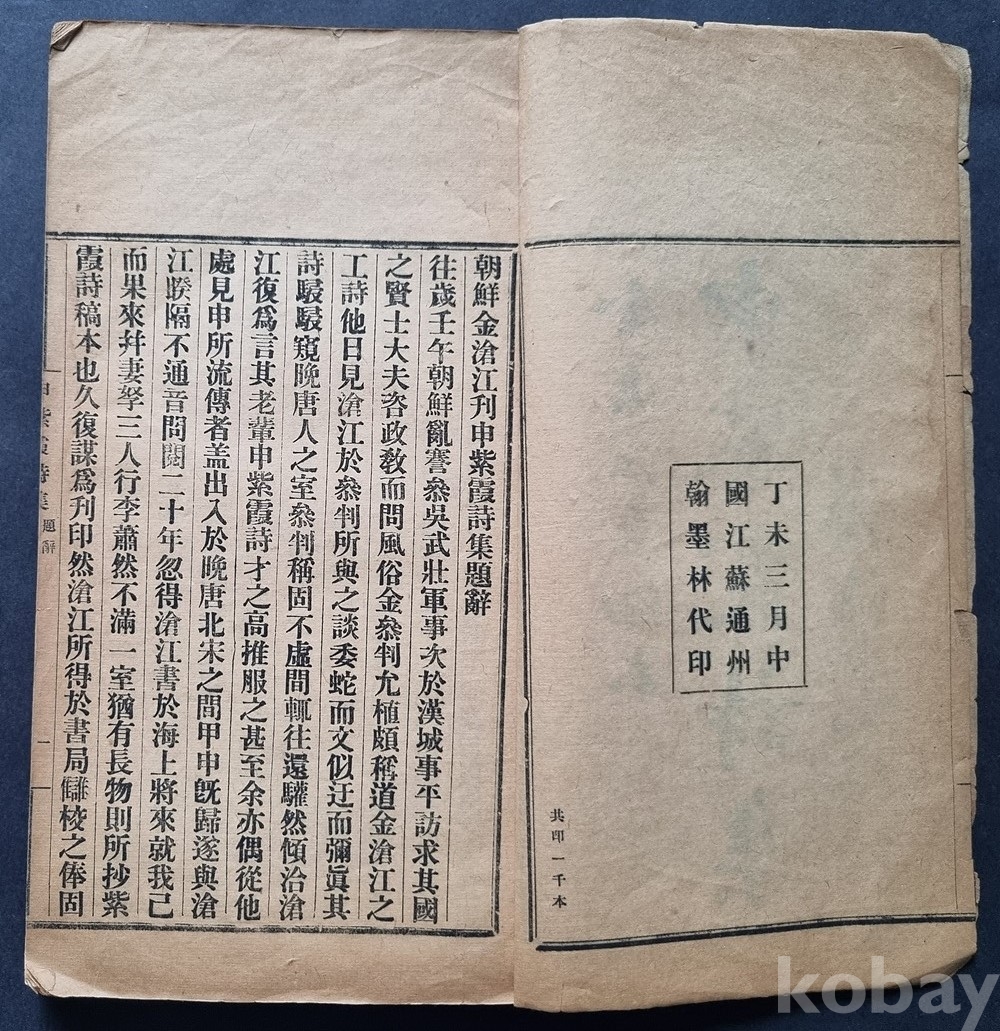 丁未三月中
國江蘇通州
翰墨林代印
共印一千本
朝鮮金滄江刊申紫霞詩集題辭
往歲壬午朝鮮亂謇叅吳武壯軍事次於漢城事平訪求其國
之賢士大夫咨政敎而問風俗金叅判允植頗稱道金滄江之
工詩他日見滄江於叅判所與之談委蛇而文似迂而彌眞其
詩駸駸窺晚唐人之室叅判稱固不虛間輒往還驩然傾洽滄
江復爲言其老輩申紫霞詩才之高推服之甚至余亦偶從他
處見申所流傳者盖出入於晚唐北宋之間甲申旣歸遂與滄
江睽隔不通音問閱二十年忽得滄江書於海上將來就我己
而果來幷妻孥三人行李蕭然不滿一室猶有長物則所抄紫
霞詩稿本也久復謀爲刊印然滄江所得於書局讎校之俸固
申紫霞詩集 題辭 一
kobay